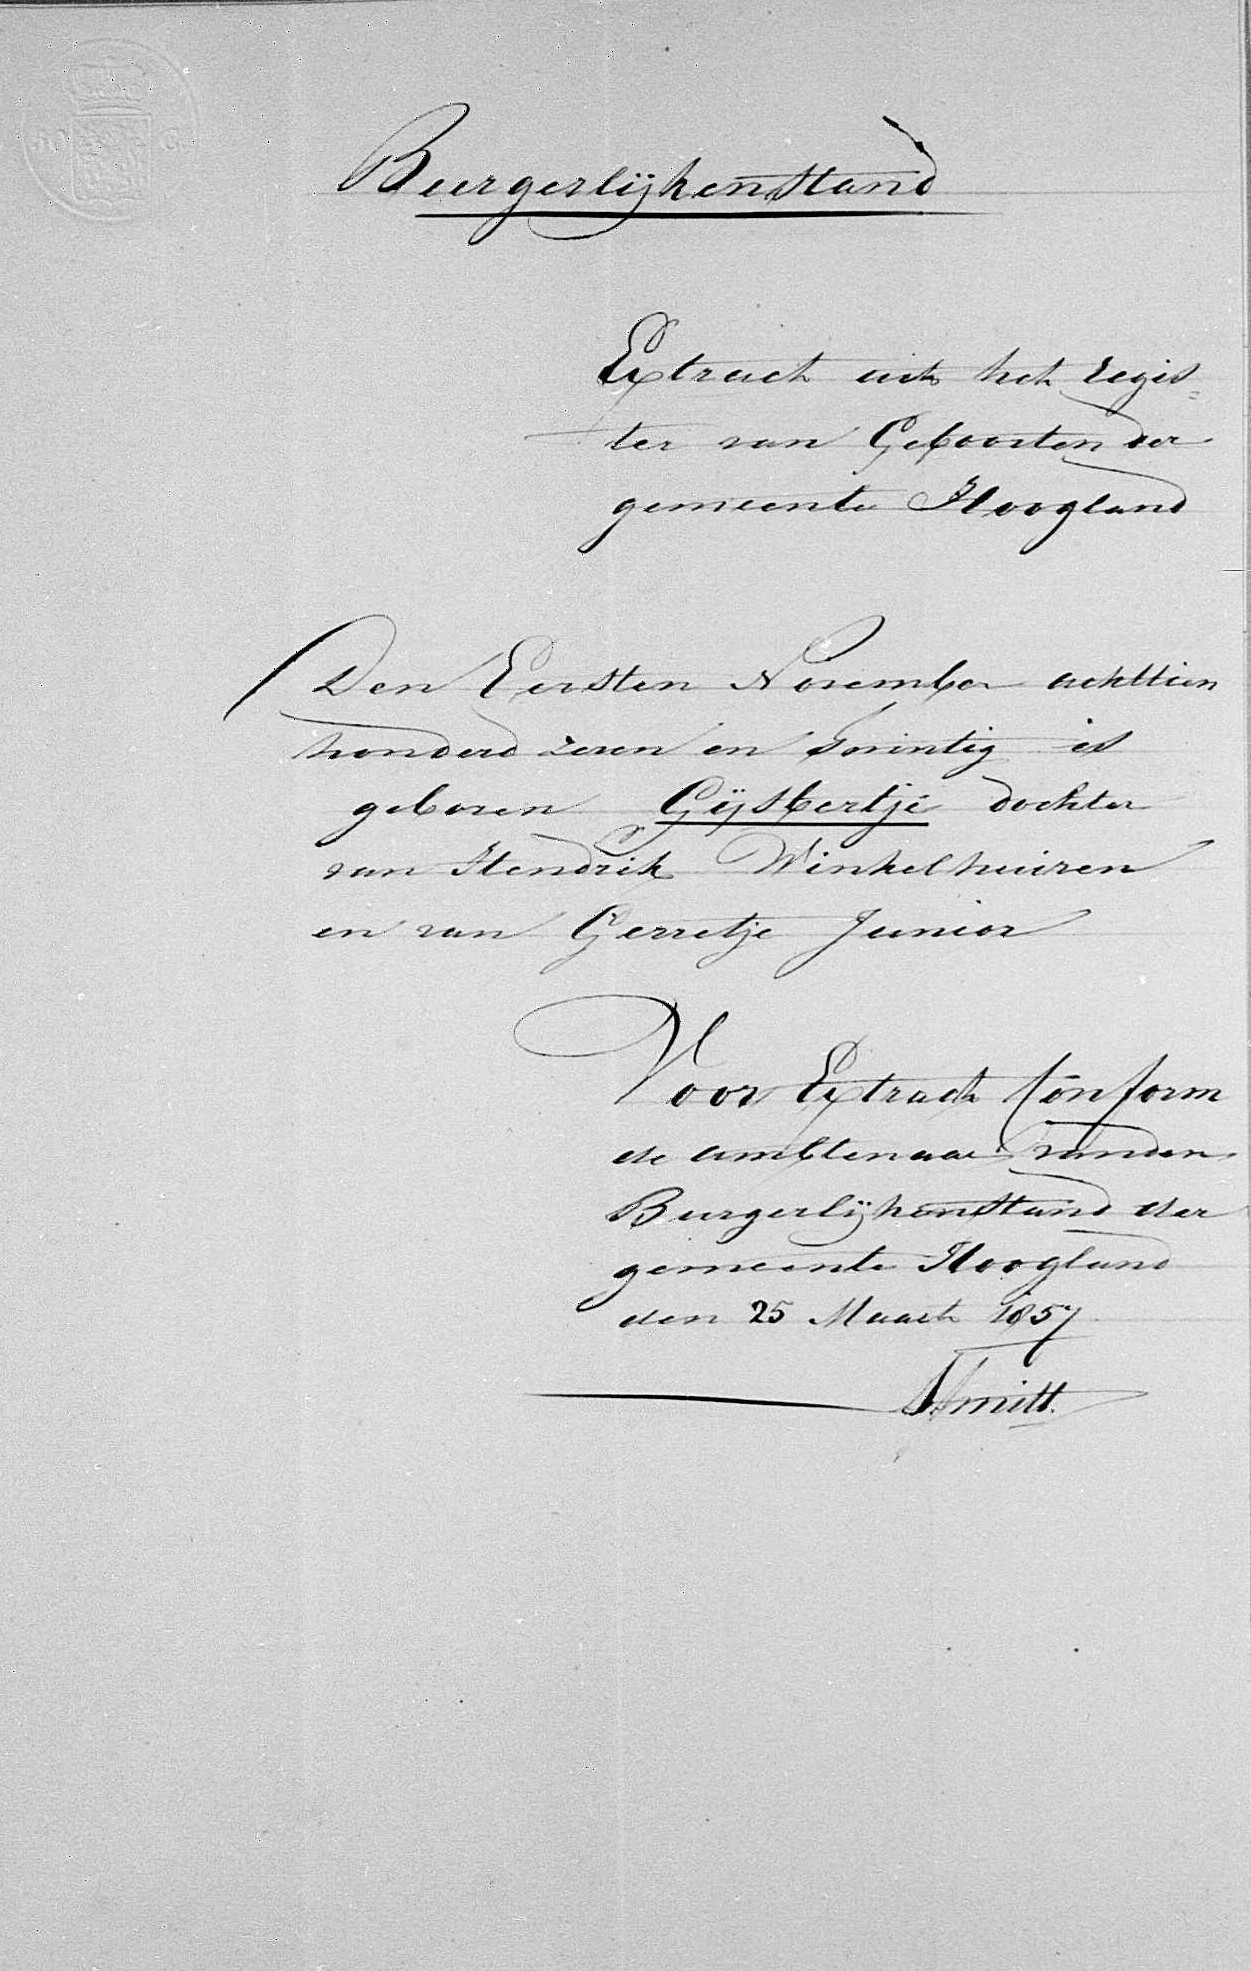 Burgerlijkenstand
Extract uit het regis=
ter van Geboorten der
gemeente Hoogland
Den Eersten November achttien
honderd zeven en twintig is
geboren Gijsbertje dochter
van Hendrik Winkelhuizen
en van Gerretje Junior
Voor Extract Conform
de ambtenaar van den
Burgerlijkenstand der
gemeente Hoogland
den 25 Maart 1857
Smitt.